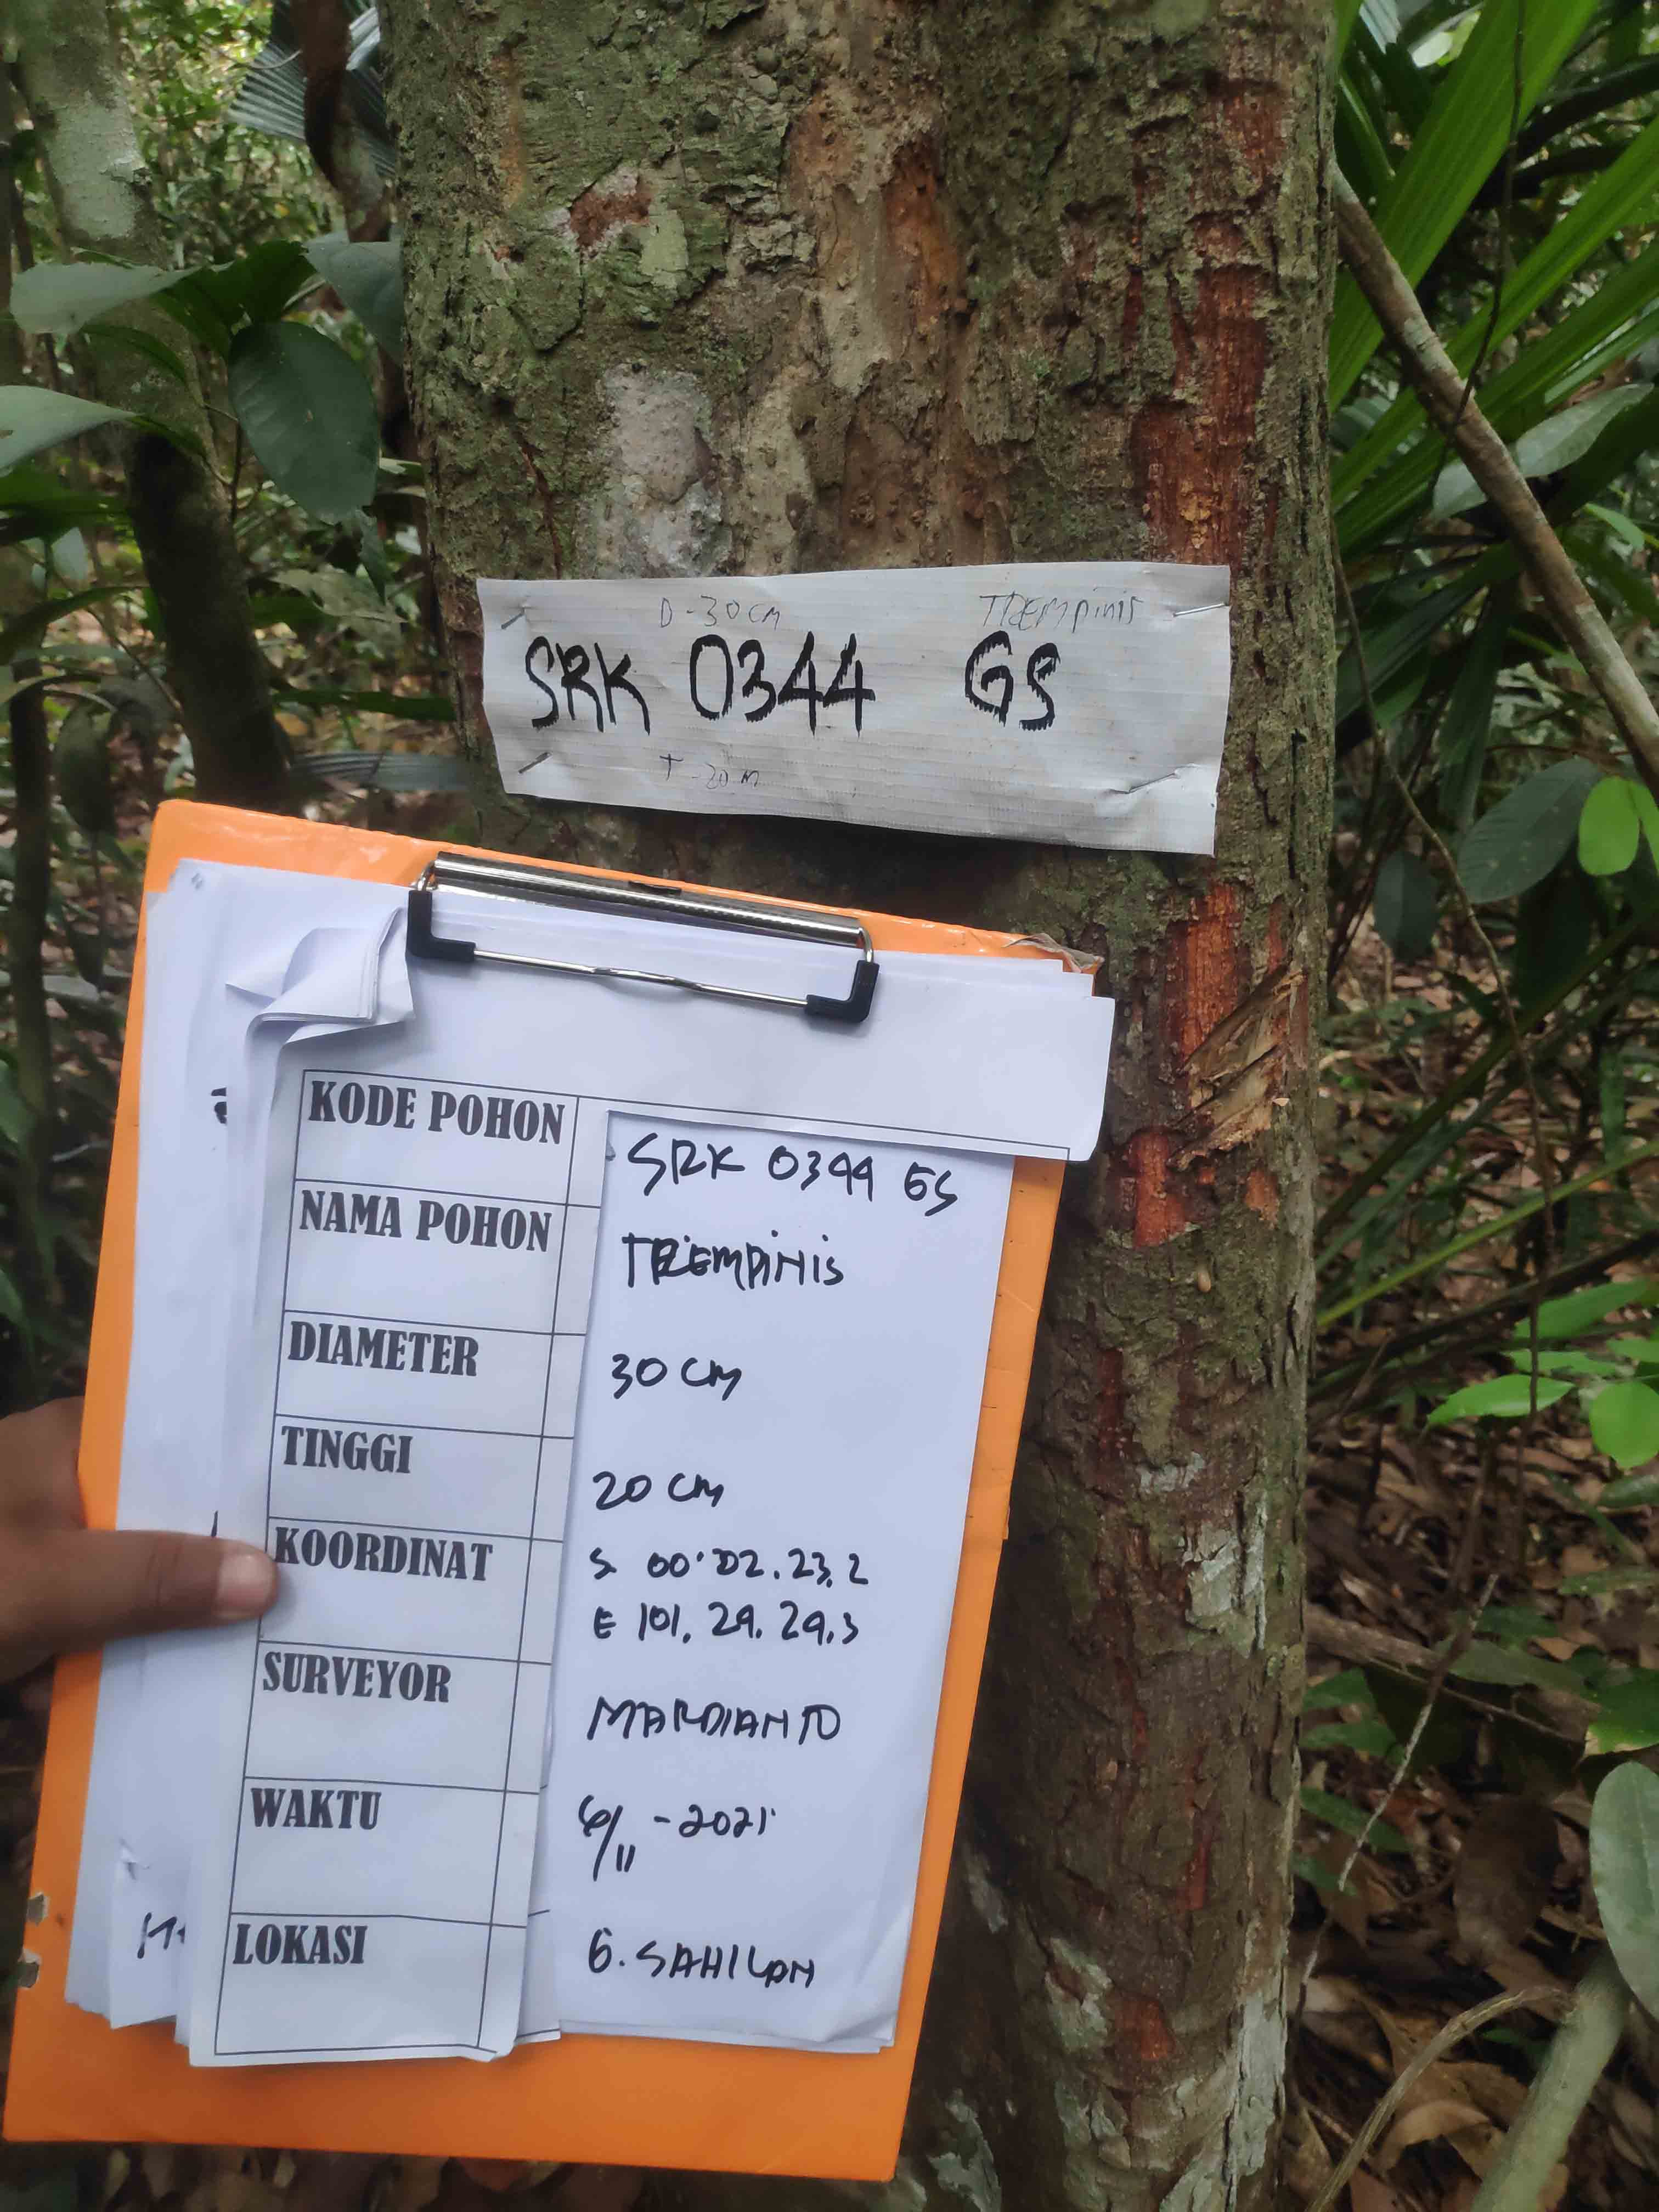 D-30 CM TREMPINIS
SRK 0344 GS
T-20 M
KODE POHON SRK 0344 GS
NAMA POHON TREMPINIS
DIAMETER 30 CM
TINGGI 20 CM
KOORDINAT S 00°02.23.2
E 101.29.29.3
SURVEYOR MARDIANTO
WAKTU 6/11-2021
LOKASI G. SAHILAN